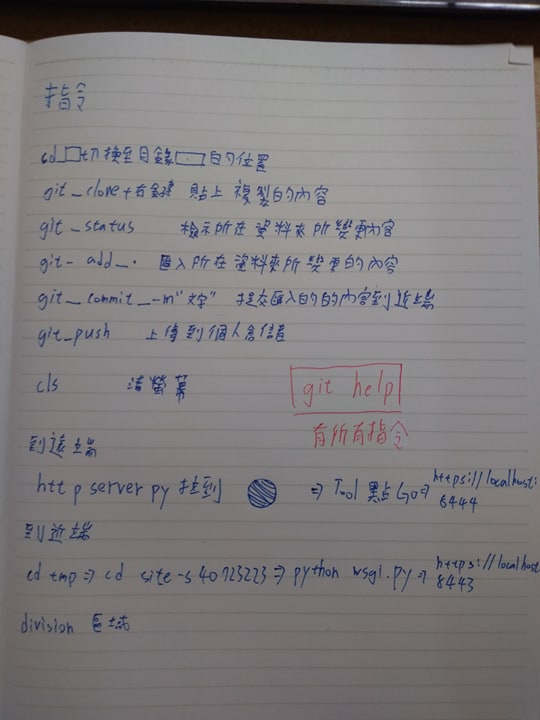 指令
cd_□切換至目錄□的位置
git_clone+右鍵 貼上 複製的內容
git_status 檢示所在資料夾所變更內容
git_add_. 匯入所在資料夾所變更的內容
git_commit_-m"文字" 提交匯入的的內容到近端
git_push 上傳到個人倉儲
cls 清螢幕
git help
有所有指令
到遠端
http server py 拉到 ⇒ Tool 點 Go ⇒ https://localhost:8444
到近端
cd tmp ⇒ cd site-s40723223 ⇒ python wsgi.py ⇒ https://localhost:8443
division 區域